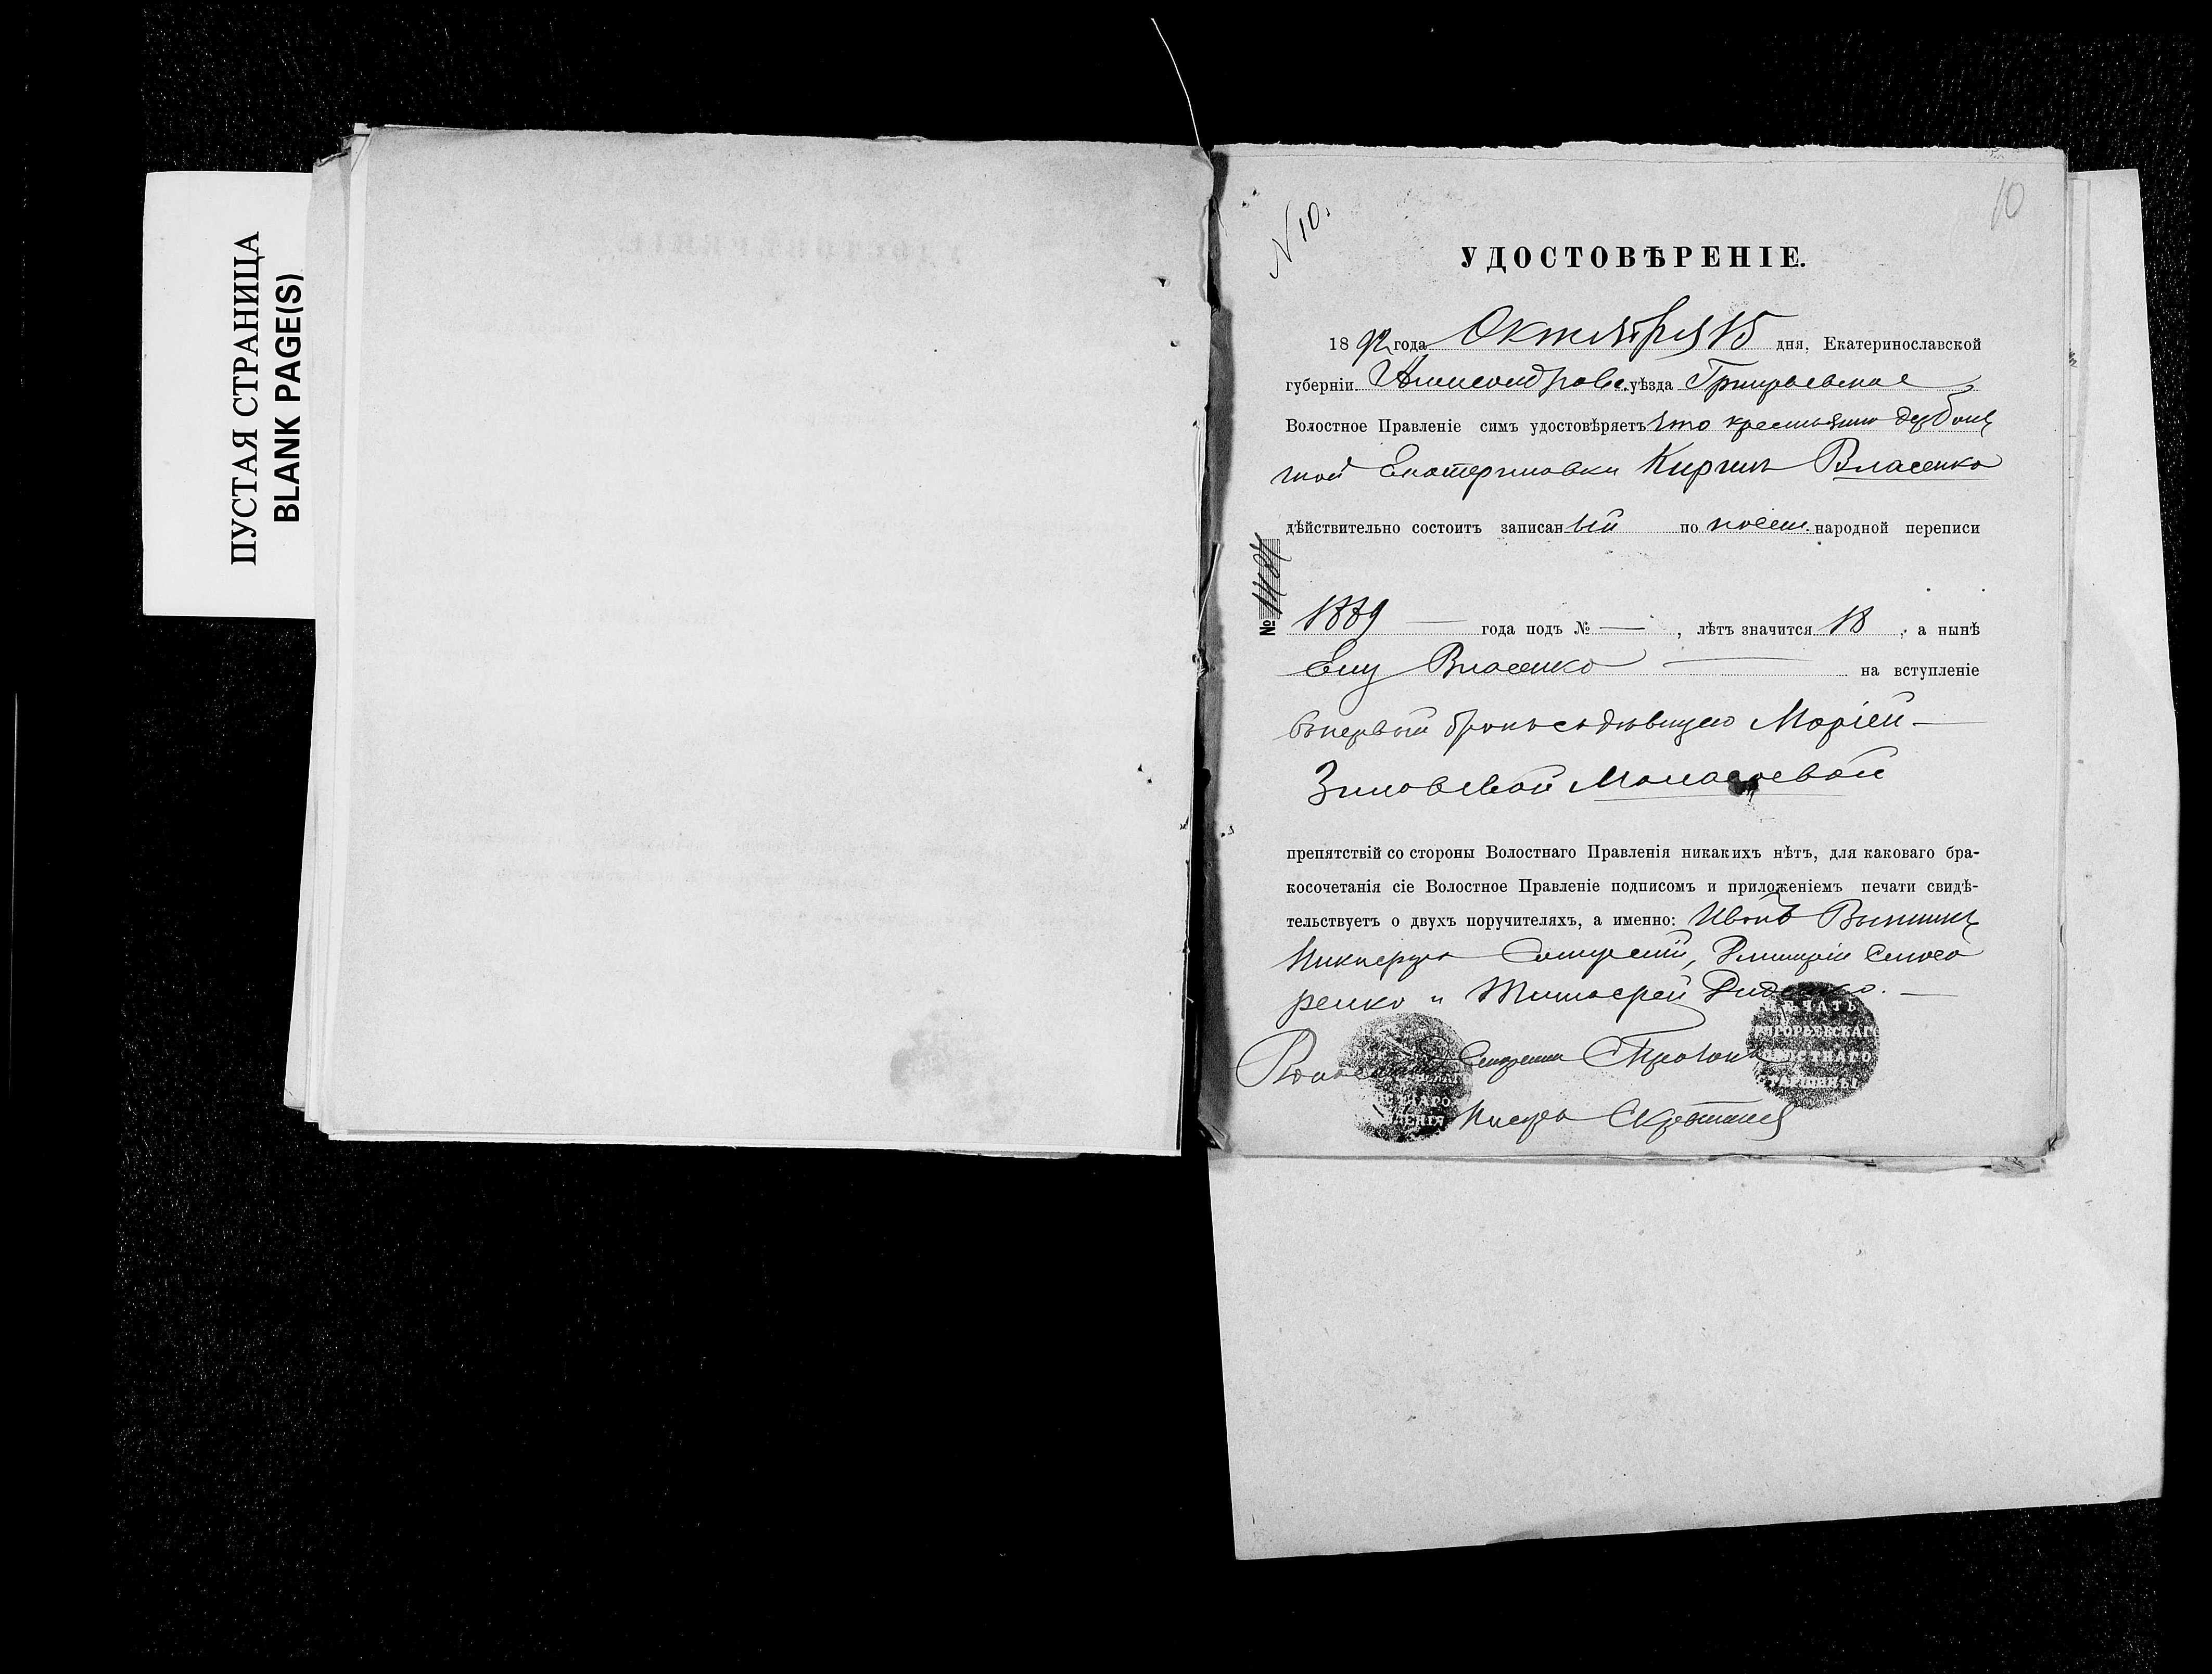 ПУСТАЯ СТРАНИЦА
BLANK PAGE(S)
10
N 10.
УДОСТОВѢРЕНІЕ.
1892 года Октября 15 дня, Екатеринославской
губерніи Александровс. уѣзда Григорьевское
Волостное Правленіе симъ удостовѣряетъ что крестьянинъ
Екатериновки Кирилъ Власенко
дѣйствительно состоитъ записанный по посем. народной переписи
№ 1184
1889 — года подъ № — , лѣтъ значится 18 , а нынѣ
Ему Власенко — на вступленіе
въ первый бракъ съ дѣвицею Маріей —
Зиновевой
препятствій со стороны Волостнаго Правленія никакихъ нѣтъ, для каковаго бра-
косочетанія сіе Волостное Правленіе подписомъ и приложеніемъ печати свидѣ-
тельствуетъ о двухъ поручителяхъ, а именно: Иванъ
Никифоръ
ренко и Тимофей
ПЕЧАТЬ
ГРИГОРЬЕВСКАГО
ВОЛОСТНАГО
СТАРШИНЫ
Волостной Старшина
Писарь